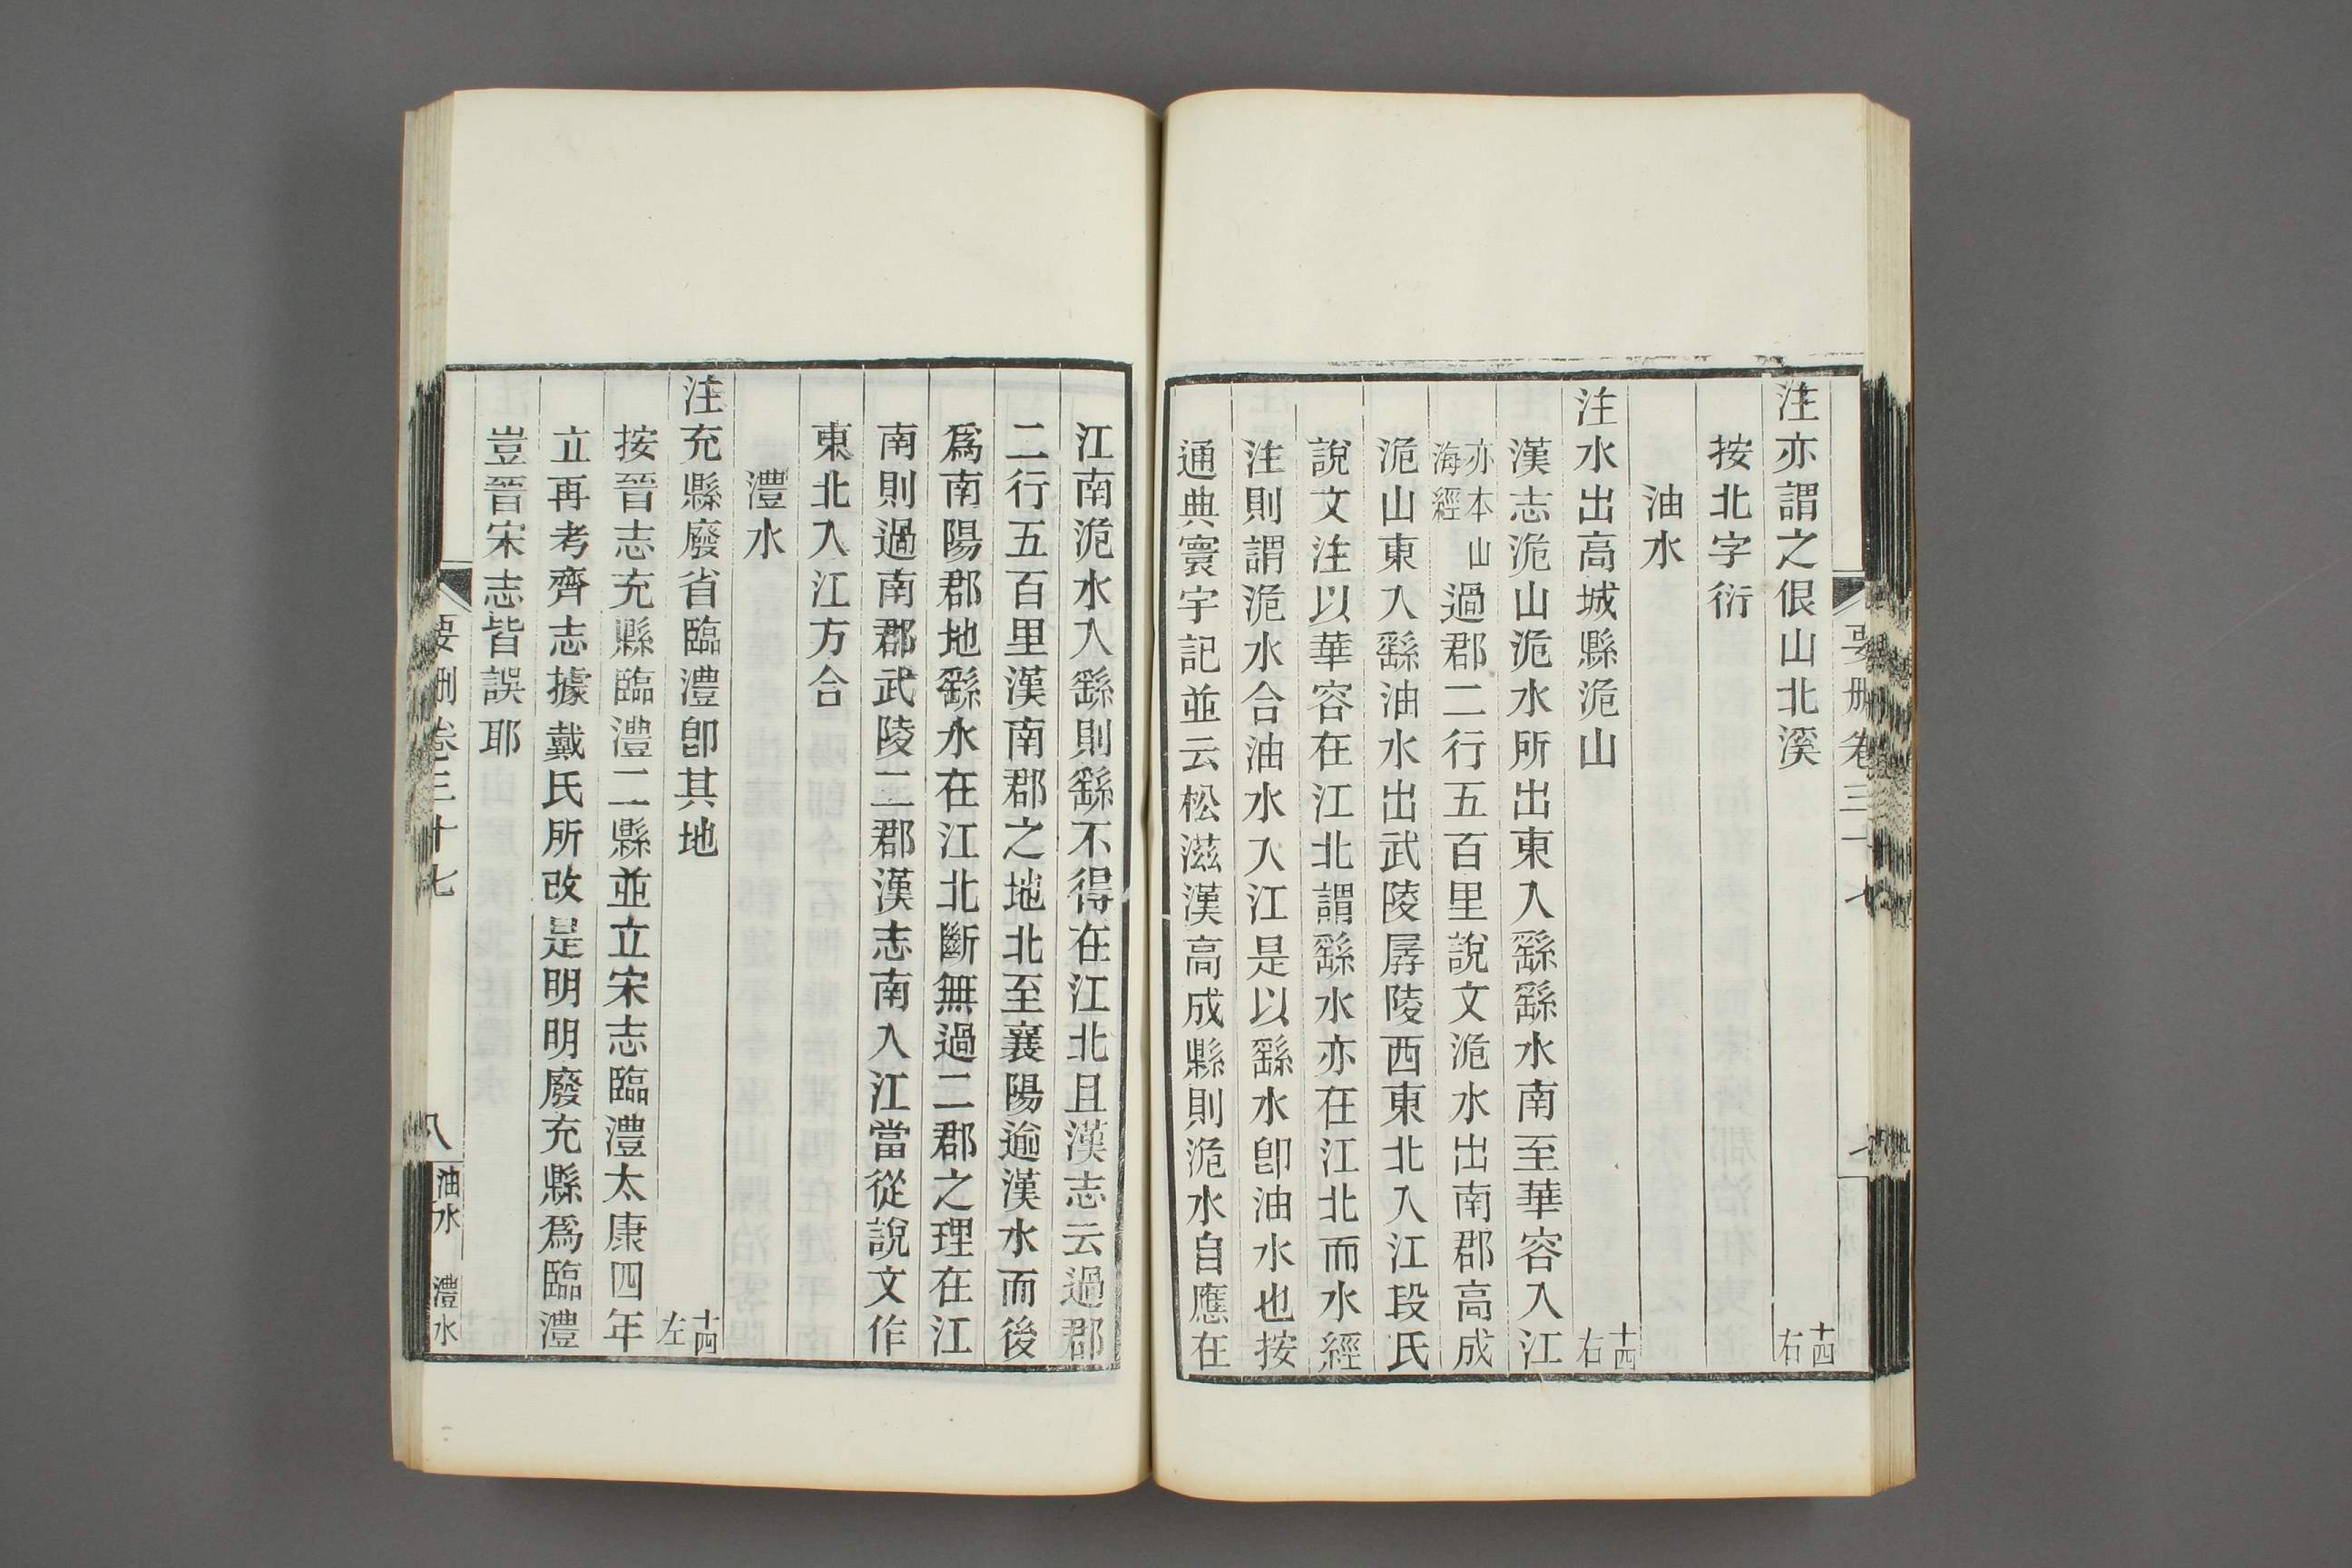 注亦謂之佷山北溪 十四右
按北字衍
油水
注水出高城縣洈山 十四右
漢志洈山洈水所出東入繇繇水南至華容入江
亦本山海經過郡二行五百里說文洈水出南郡高成
洈山東入繇油水出武陵孱陵西東北入江段氏
說文注以華容在江北謂繇水亦在江北而水經
注則謂洈水合油水入江是以繇水卽油水也按
通典寰宇記並云松滋漢高成縣則洈水自應在
江南洈水入繇則繇不得在江北且漢志云過郡
二行五百里漢南郡之地北至襄陽逾漢水而後
爲南陽郡地繇水在江北斷無過二郡之理在江
南則過南郡武陵二郡漢志南入江當從說文作
東北入江方合
澧水
注充縣廢省臨澧卽其地 十四左
按晉志充縣臨澧二縣並立宋志臨澧太康四年
立再考齊志據戴氏所改是明明廢充縣爲臨澧
豈晉宋志皆誤耶
要刪卷三十七 八 油水 澧水